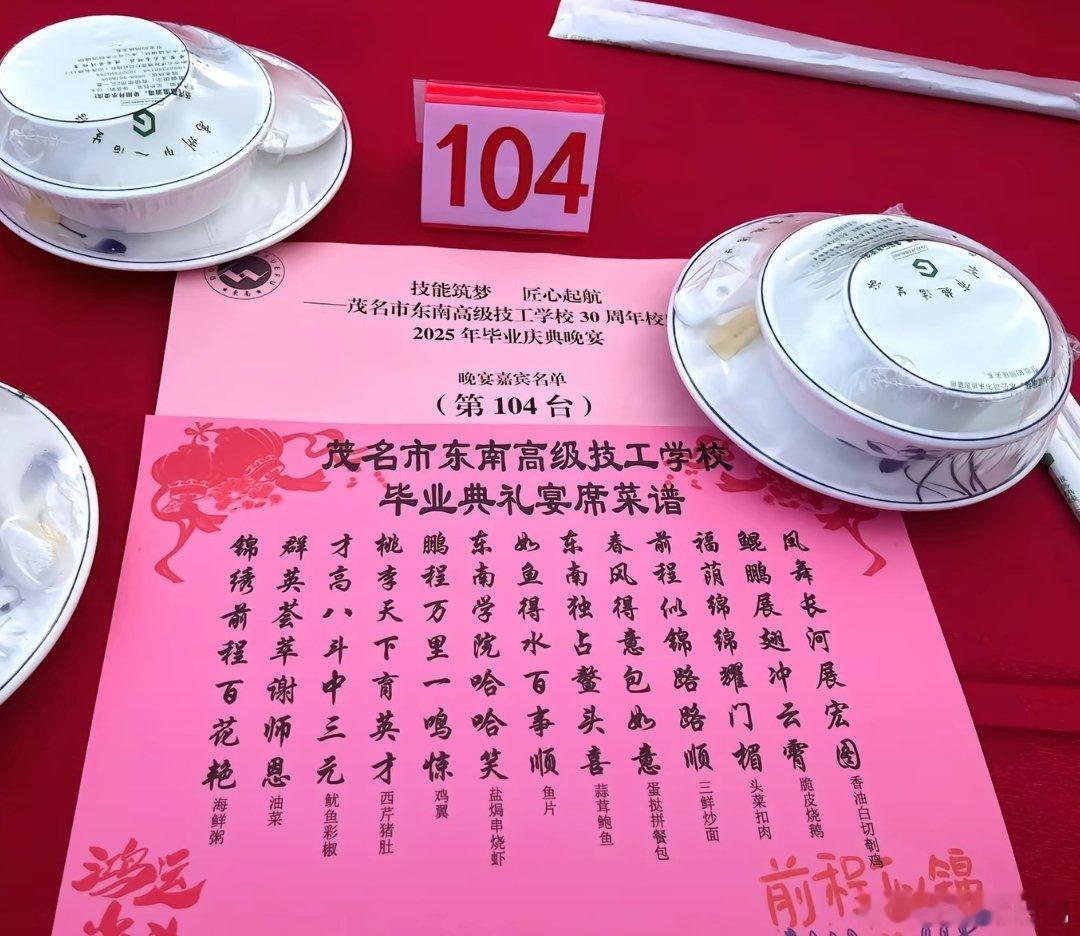 104
技能筑梦 匠心起航
——茂名市东南高级技工学校30周年校
2025年毕业庆典晚宴
晚宴嘉宾名单
(第104台)
茂名市东南高级技工学校
毕业典礼宴席菜谱
凤舞长河展宏图
香油白切制鸡
鲲鹏展翅冲云霄
脆皮烧鹅
福荫绵绵耀门楣
头菜扣肉
前程似锦路路顺
三鲜炒面
春风得意包如意
蛋挞拼餐包
东南独占鳌头喜
蒜茸鲍鱼
如鱼得水百事顺
鱼片
东南学院哈哈笑
盐焗串烧虾
鹏程万里一鸣惊
鸡翼
桃李天下育英才
西芹猪肚
才高八斗中三元
鱿鱼彩椒
群英荟萃谢师恩
油菜
锦绣前程百花艳
海鲜粥
鸿运
前程似锦